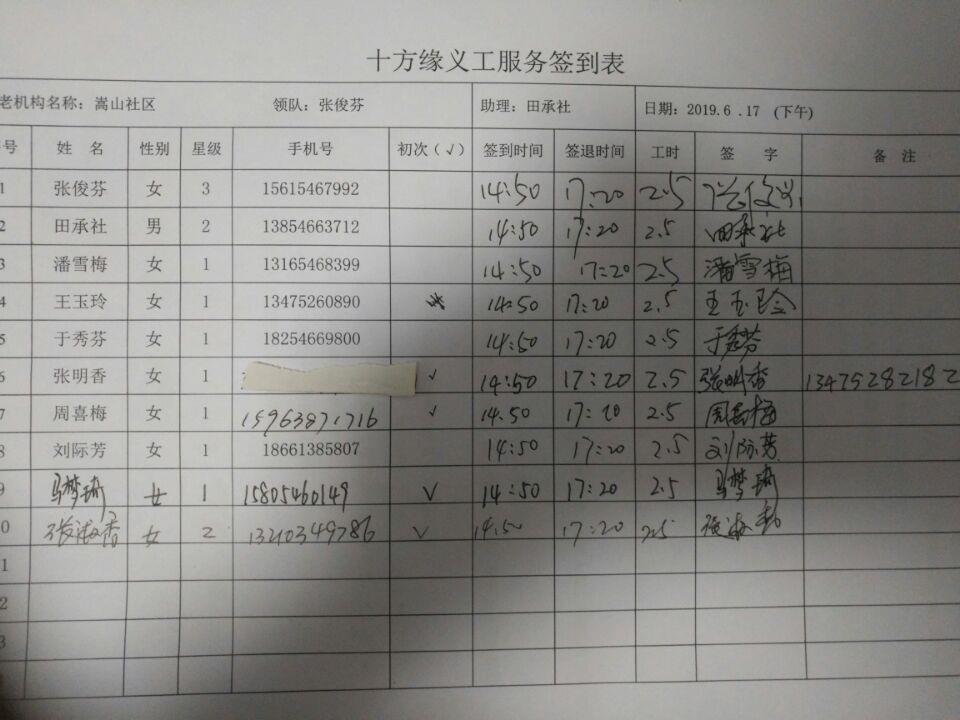 十方缘义工服务签到表
老机构名称：嵩山社区 领队：张俊芬 助理：田承社 日期：2019.6 .17 (下午)
号 姓 名 性别 星级 手机号 初次（√） 签到时间 签退时间 工时 签 字 备 注
1 张俊芬 女 3 15615467992 14:50 17:20 2.5
2 田承社 男 2 13854663712 14:50 17:20 2.5 田承社
3 潘雪梅 女 1 13165468399 14:50 17:20 2.5 潘雪梅
4 王玉玲 女 1 13475260890 14:50 17:20 2.5 王玉玲
5 于秀芬 女 1 18254669800 14:50 17:20 2.5 于秀芬
6 张明香 女 1 √ 14:50 17:20 2.5 张明香 13475282182
7 周喜梅 女 1 15963871716 √ 14:50 17:20 2.5 周喜梅
8 刘际芳 女 1 18661385807 14:50 17:20 2.5 刘际芳
9 马梦琦 女 1 15805460149 √ 14:50 17:20 2.5 马梦琦
0 张淑香 女 2 13210349786 √ 14:50 17:20 2.5
1
2
3